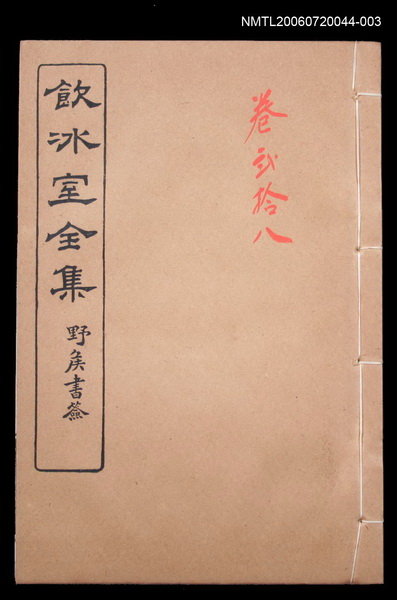 NMTL20060720044-003
卷弍拾八
飲冰室全集
野侯書簽